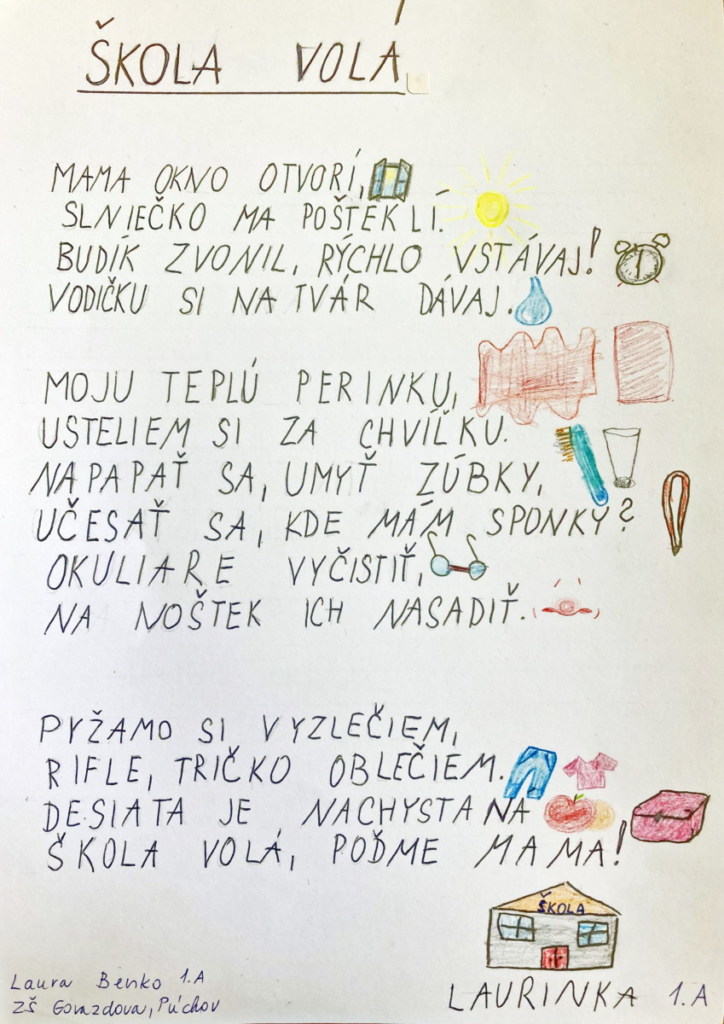 ŠKOLA VOLÁ
MAMA OKNO OTVORÍ,
SLNIEČKO MA POŠTEKLÍ.
BUDÍK ZVONIL, RÝCHLO VSTÁVAJ!
VODIČKU SI NA TVÁR DÁVAJ.
MOJU TEPLÚ PERINKU,
USTELIEM SI ZA CHVÍĽKU.
NAPAPAŤ SA, UMYŤ ZÚBKY,
UČESAŤ SA, KDE MÁM SPONKY?
OKULIARE VYČISTIŤ,
NA NOŠTEK ICH NASADIŤ.
PYŽAMO SI VYZLEČIEM,
RIFLE, TRIČKO OBLEČIEM.
DESIATA JE NACHYSTANA
ŠKOLA VOLÁ, POĎME MAMA!
ŠKOLA
LAURINKA 1.A
Laura Benko 1.A
ZŠ Gorazdova, Púchov